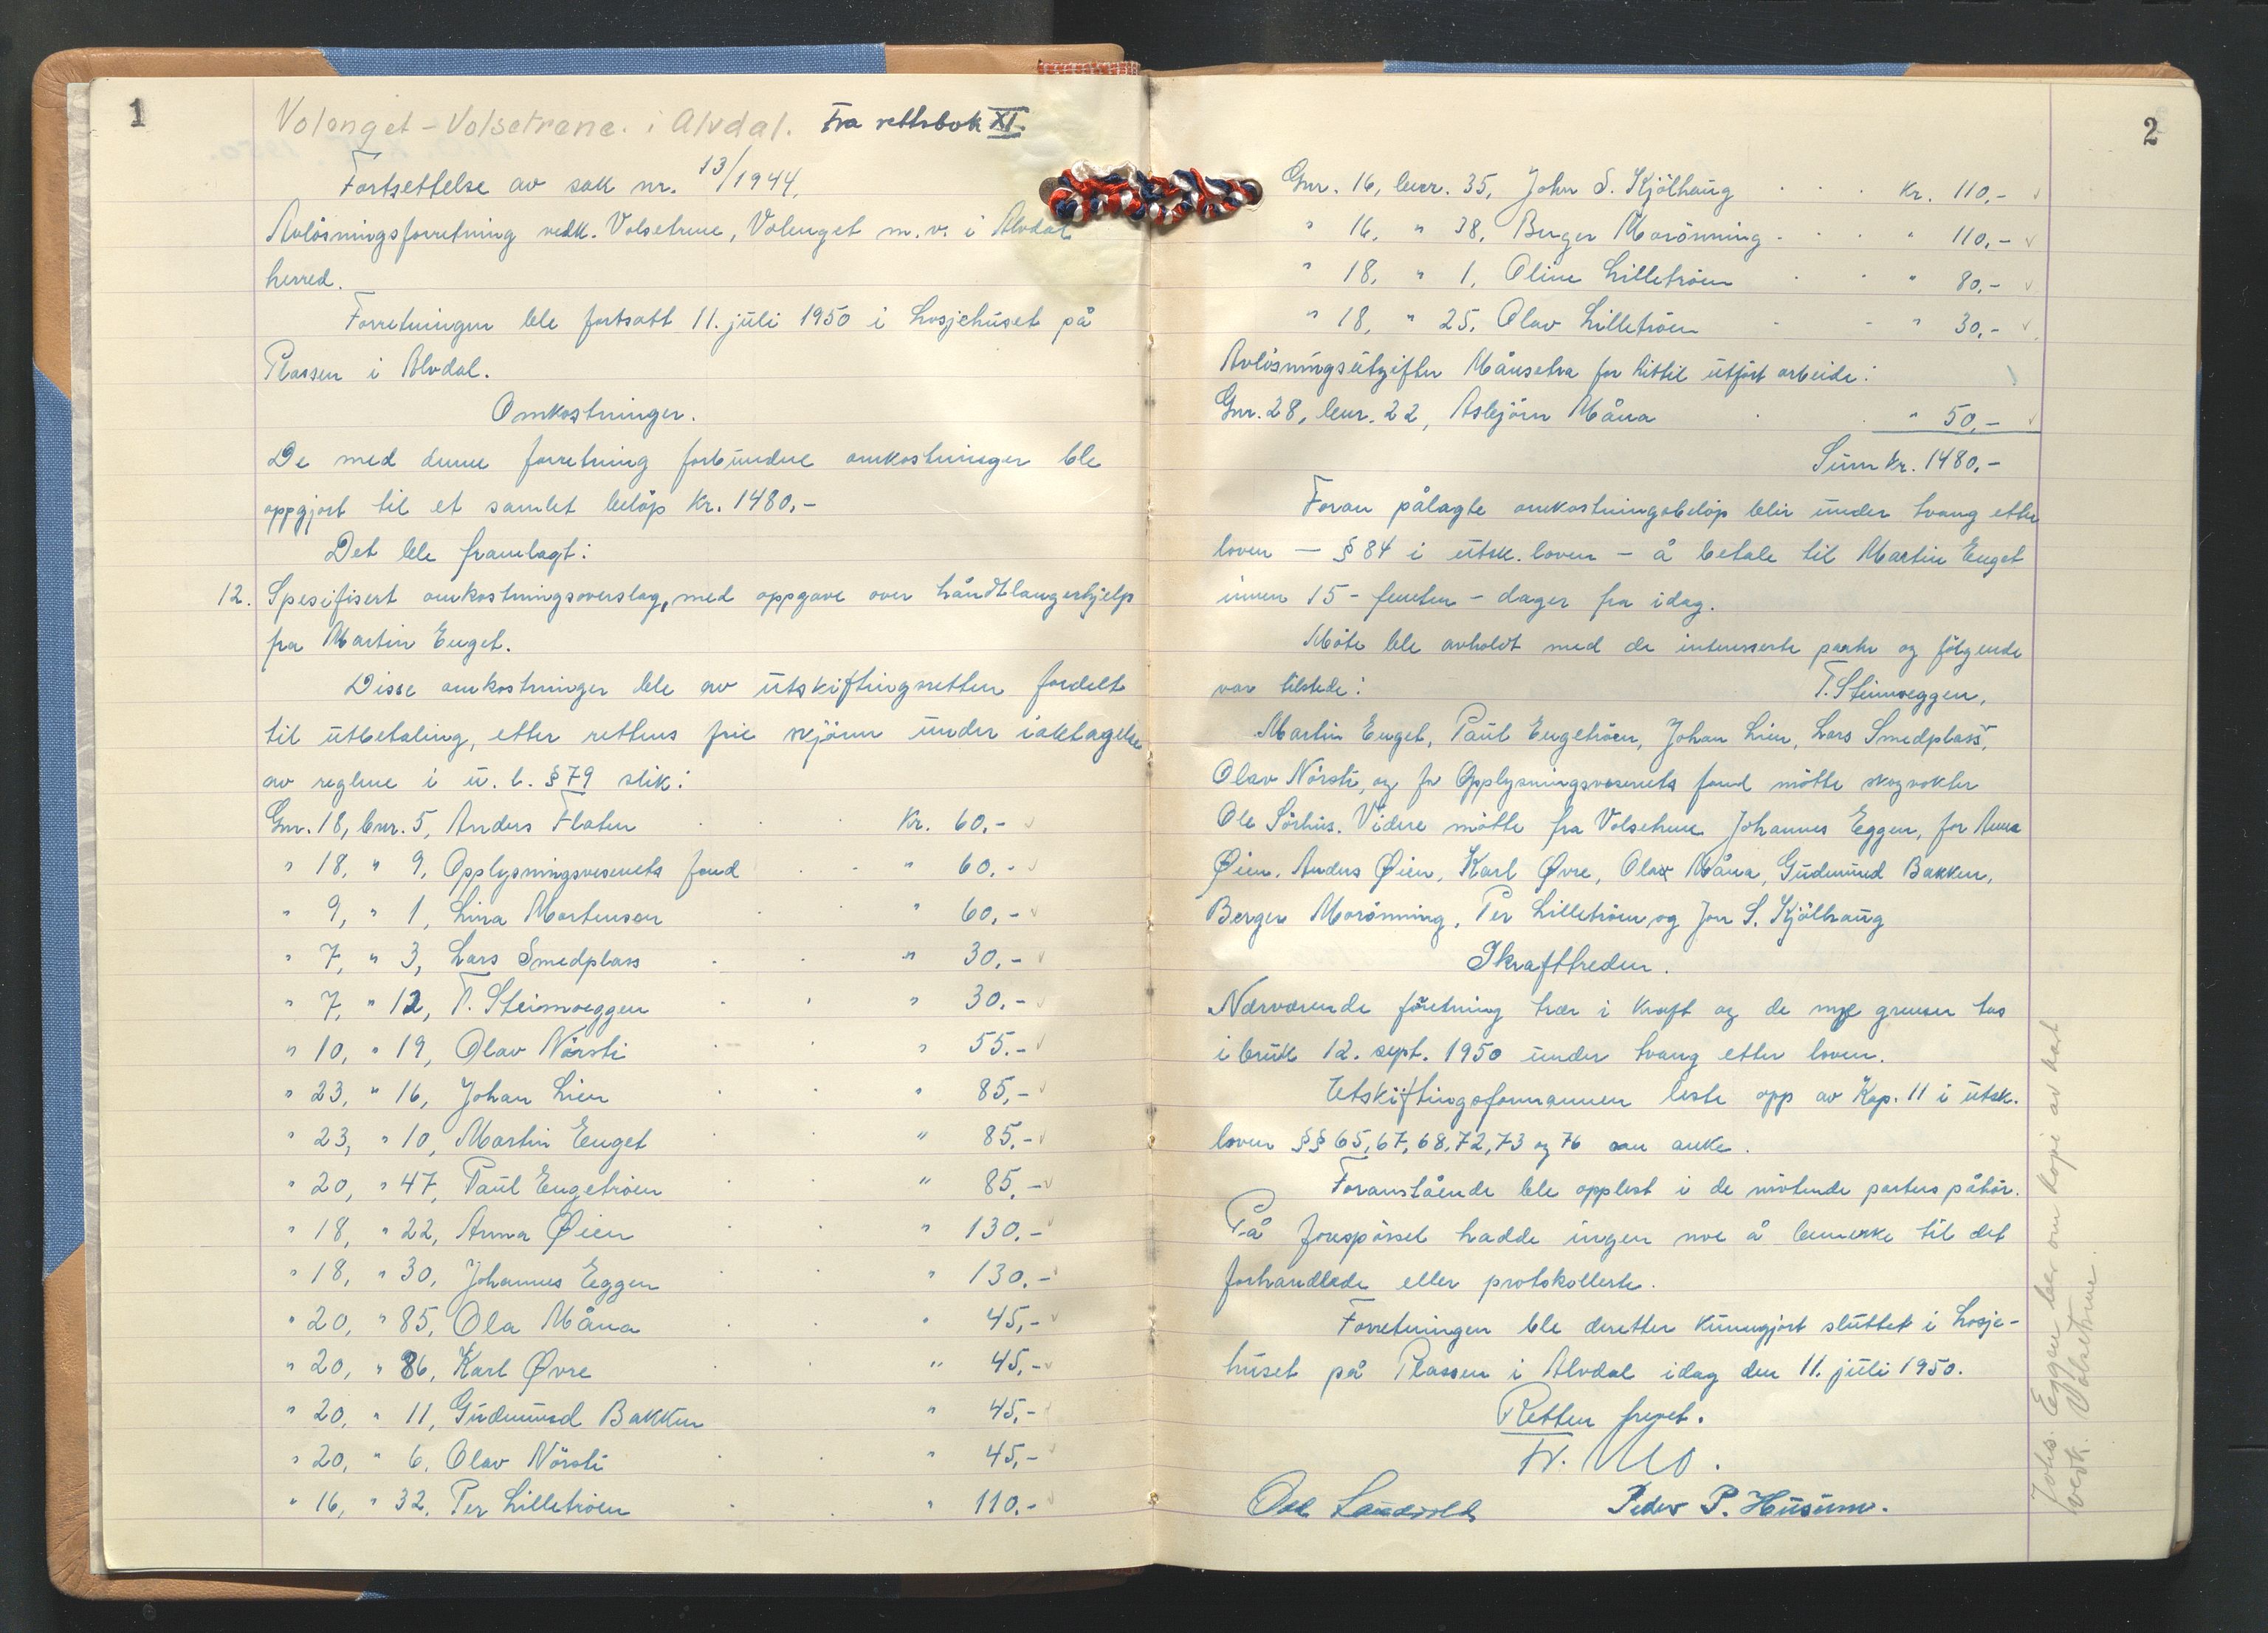 1
Volenget - Volsetrene i Alvdal. Fra rettsbok XI.
Fortsettelse av sak nr. 13/1944.
Avløsningsforretning vedk. Volsetrene, Volenget m.v. i Alvdal
herred.
Forretningen ble fortsatt 11. juli 1950 i Losjehuset på
Plassen i Alvdal.
Omkostninger.
De med denne forretning forbundne omkostninger ble
oppgjort til et samlet beløp kr. 1480,-
Det ble framlagt:
12. Spesifisert omkostningsoverslag, med oppgave over håndtlangerhjelp
fra Martin Enget.
Disse omkostninger ble av utskiftingsretten fordelt
til utbetaling, etter rettens frie skjønn under iakttagelse
av reglene i u. l. § 79 slik:
Gnr. 18, bnr. 5, Anders Flaten . . . Kr. 60,-
" 18, " 9, Opplysningsvesenets fond . . " 60,-
" 9, " 1, Lina Mortensen . . " 60,-
" 7, " 3, Lars Smedplass . . " 30,-
" 7, " 12, T. Steimoeggen . . " 30,-
" 10, " 19, Olav Nörsti . . " 55,-
" 23, " 16, Johan Lien . . " 85,-
" 23, " 10, Martin Enget . . " 85,-
" 20, " 47, Paul Engetrøen . . " 85,-
" 18, " 22, Anna Øien . . " 130,-
" 18, " 30, Johannes Eggen . . " 130,-
" 20, " 85, Ola Måna . . " 45,-
" 20, " 86, Karl Øvre . . " 45,-
" 20, " 11, Gudmund Bakken . " 45,-
" 20, " 6, Olav Nörsti . . " 45,-
" 16, " 32, Per Lilletrøen . . " 110,-
2
Gnr. 16, bnr. 35, John S. Kjölhaug . . . Kr. 110,-
" 16, " 38, Berger Morönning . . . " 110,-
" 18, " 1, Oline Lilletrøen . . " 80,-
" 18, " 25, Olav Lilletrøen . . " 30,-
Avløsningsutgifter Månsetra for hittil utført arbeide:
Gnr. 28, bnr. 22, Asbjörn Måna . . " 50,-
Sum kr. 1480,-
Foran pålagte omkostningsbeløp blir under tvang etter
loven - § 84 i utsk. loven - å betale til Martin Enget
innen 15 - femten - dager fra idag.
Møte ble avholdt med de interesserte parter og følgende
var tilstede: T. Steimoeggen,
Martin Enget, Paul Engetrøen, Johan Lien, Lars Smedplass,
Olav Nörsti, og for Opplysningsvesenets fond møtte skogvokter
Ole Sörhus. Videre møtte fra Volsetrene Johannes Eggen, for Anna
Øien, Anders Øien, Karl Øvre, Ola Måna, Gudmund Bakken,
Berger Morönning, Per Lilletrøen, og Jon S. Kjölhaug
Ikrafttreden.
Nærværende forretning trær i kraft og de nye grenser tas
i bruk 12. sept. 1950 under tvang etter loven.
Utskiftingsformannen leste opp av Kap. 11 i utsk.
loven §§ 65, 67, 68, 72, 73 og 76 om anke.
Foranstående ble opplest i de møtende parters påhør.
På forespørsel hadde ingen noe å bemerke til det
forhandlede eller protokollerte.
Forretningen ble deretter kunngjort sluttet i Losje-
huset på Plassen i Alvdal idag den 11. juli 1950.
Retten hevet.
Peder P. Husum.
Johs. Eggen ber om kopi av kart
vedk. Volsetrene.